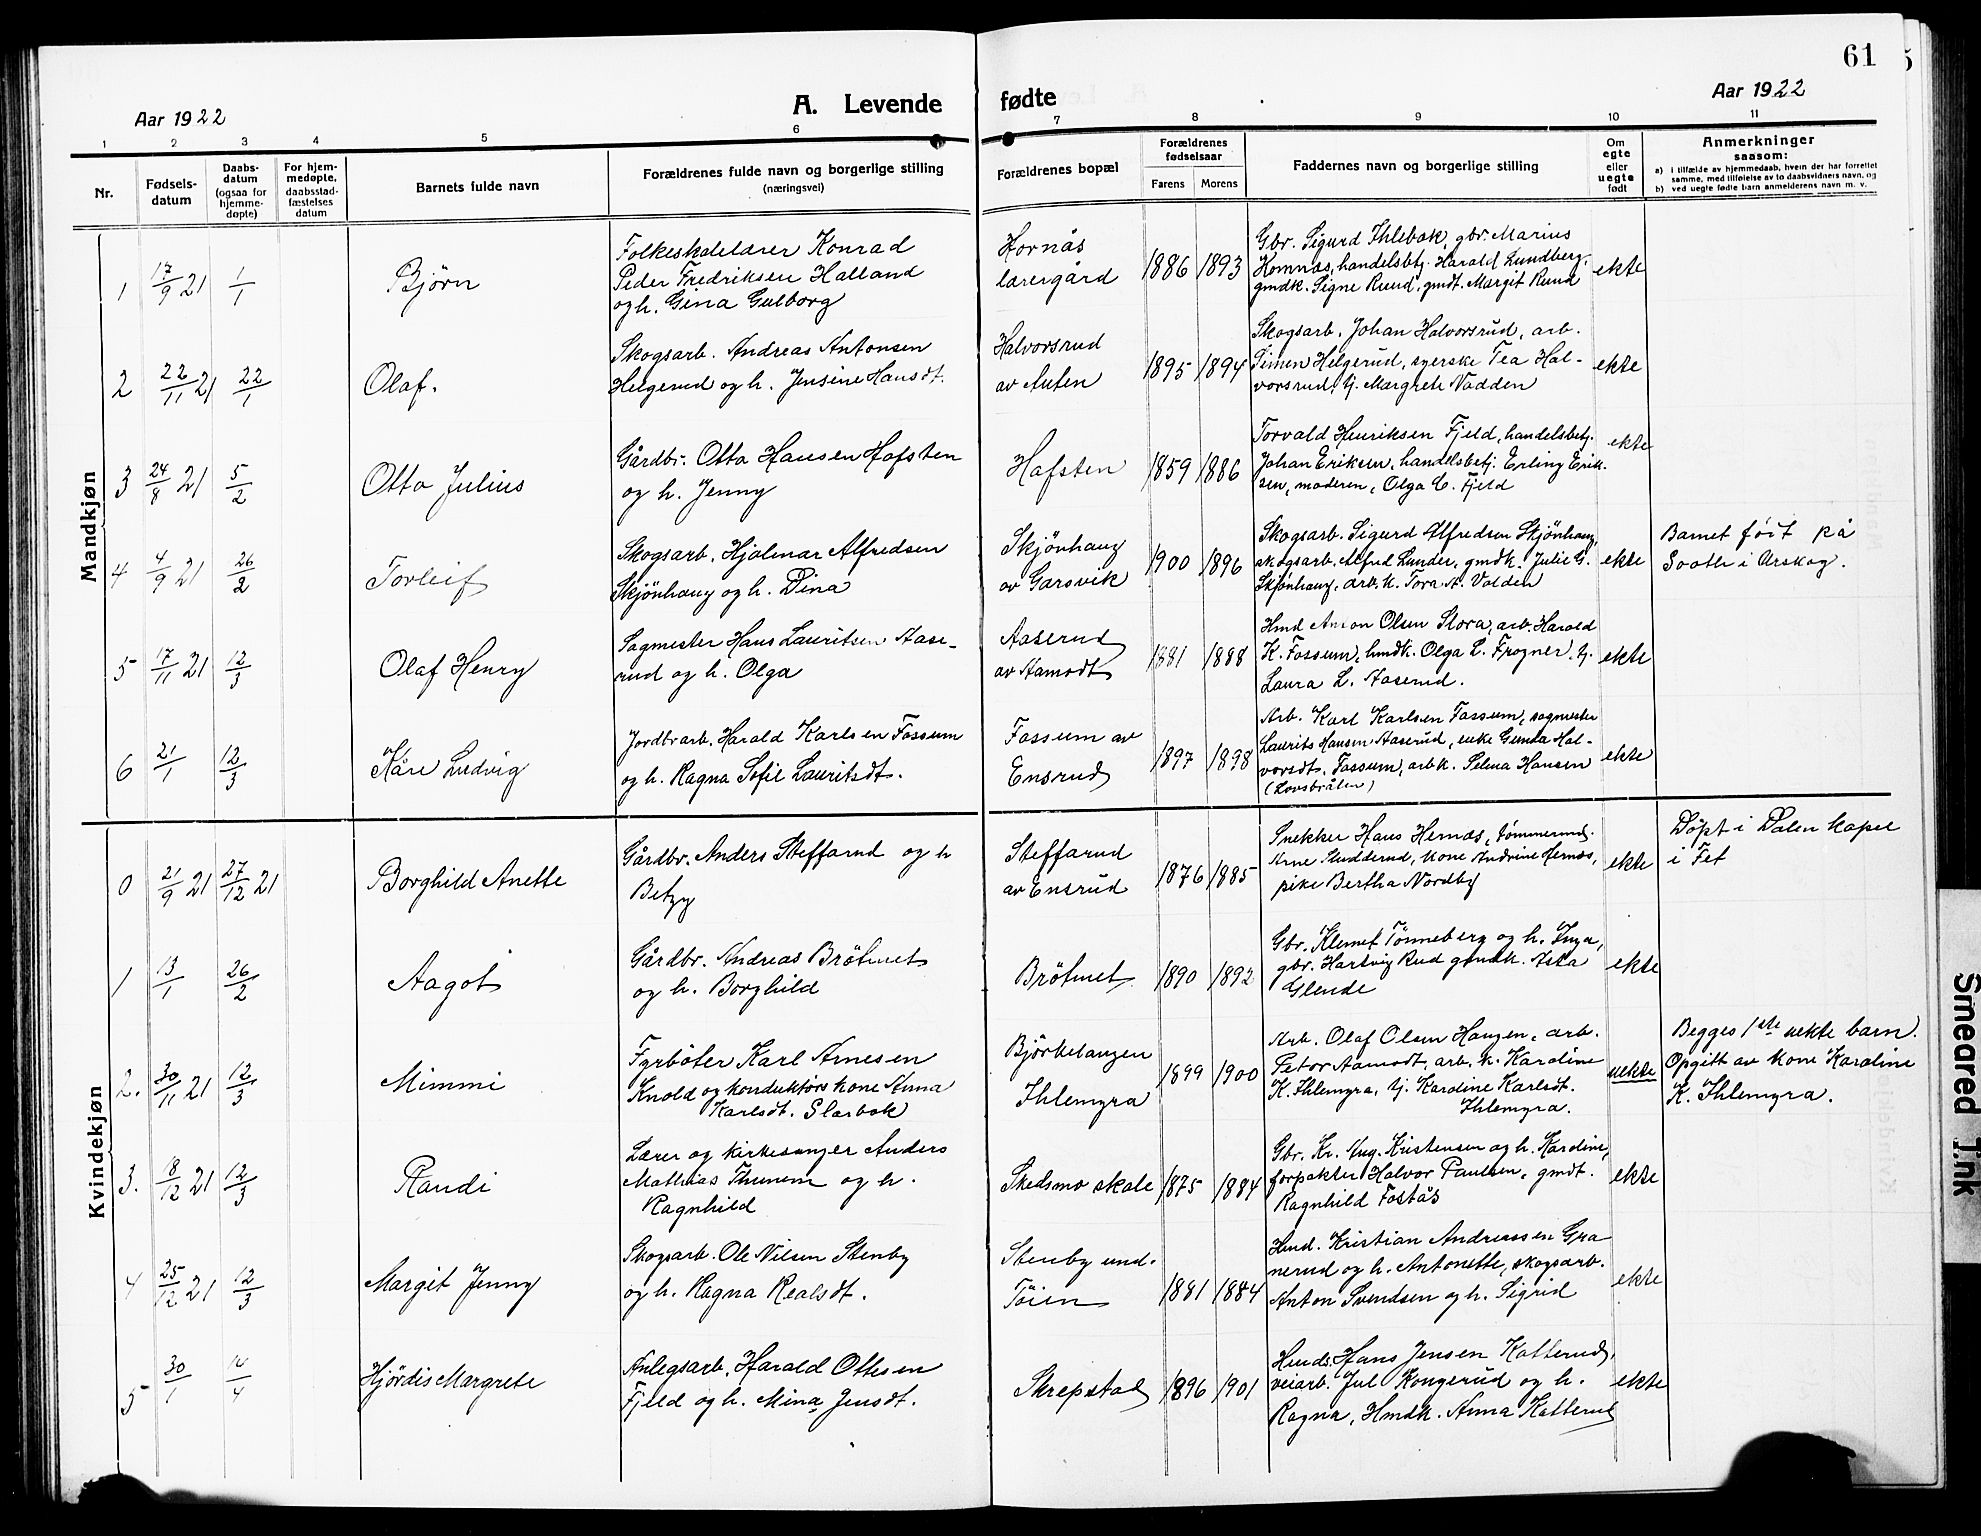 61
Aar 1922
A. Levende fødte
Aar 1922
1 2 3 4 5 6 7 8 9 10 11
Nr.
Fødsels-
datum
Daabs-
datum
(ogsaa for
hjemme-
døpte)
For hjem-
medøpte,
daabsstad-
fæstelses
datum
Barnets fulde navn
Forældrenes fulde navn og borgerlige stilling
(næringsvei)
Forældrenes bopæl
Forældrenes
fødselsaar
Farens Morens
Faddernes navn og borgerlige stilling
Om
egte
eller
uegte
født
Anmerkninger
saasom:
a) i tilfælde av hjemmedaab, hvem der har forrettet
samme, med tilføielse av to daabsvidners navn, og
b) ved uegte fødte barn anmelderens navn m. v.
Mandkjøn
1 17/9 21 1/1 Bjørn
Folkeskolelærer Konrad
Peder Fredriksen Halland
og h. Gina Gulborg
Hornås
lærergård
1886 1893
Gbr. Sigurd Ihlebæk, gbr. Marius
Komnæs, handelsbetj. Harald Lundberg,
gmdk. Signe Ruud, gmdt. Margit Ruud
ekte
2 22/11 21 22/1 Olaf.
Skogsarb. Andreas Antonsen
Helgerud og h. Jensine Hansdt.
Halvorsrud
av Auten
1895 1894
Skogsarb. Johan Halvorsrud, arb.
Simen Helgerud, syerske Tea Hal-
vorsrud, tj. Margrete Nadden
ekte
3 24/8 21 5/2 Otto Julius
Gårdbr. Otto Hansen Hofsten
og h. Jenny
Hofsten
1859 1886
Torvald Henriksen Fjeld, handelsbetj.
Johan Eriksen, handelsbetj. Erling Erik-
sen, moderen, Olga C. Fjeld
ekte
4 4/9 21 26/2 Torleif
Skogsarb. Hjalmar Alfredsen
Skjönhaug og h. Dina
Skjönhaug
av Garsvik
1900 1896
Skogsarb. Sigurd Alfredsen Skjönhaug,
skogsarb. Alfred Lunder, gmdk. Julie G.
Skjönhaug, arb. k. Tora A. Valden
ekte
Barnet født på
Sooth i Aurskog.
5 17/11 21 12/3 Olaf Henry
Sagmester Hans Lauritsen Aase-
rud og h. Olga
Aaserud
av Aamodt
1881 1888
Hmd Anton Olsen Stora, arb. Harald
K. Fossum, hmdk. Olga L. Frogner, tj.
Laura L. Aaserud.
ekte
6 21/1 12/3 Kåre Ludvig
Jordbrarb. Harald Karlsen Fossum
og h. Ragna Sofie Lauritsdt.
Fossum av
Ensrud
1897 1898
Arb. Karl Karlsen Fossum, sagmester
Laurits Hansen Aaserud, enke Gunda Hal-
vorsdt. Fossum, arb k. Selma Hansen
(Lovsbråten)
ekte
Kvindekjøn
0 21/9 21 27/12 21 Borghild Anette
Gårdbr. Anders Steffarud og h
Betzy
Steffarud
av Ensrud
1876 1885
Snekker Hans Hemæs, tömmermd.
Arne Studderud, kone Andrine Hemæs,
pike Bertha Nordby
ekte
Döpt i Dalen kapel
i Fet
1 13/1 26/2 Aagot
Gårdbr. Andreas Bröttnet
og h. Borghild
Bröttnet
1890 1892
Gbr. Klemet Tönneberg og h. Inga,
gbr. Hartvig Rud gmdk. Asta
Glende
ekte
2. 30/11 21 12/3 Mimmi
Fyrböter Karl Arnesen
Knold og konduktörs kone Anna
Karlsdt. Slorbak
Björkelangen
Ihlemyra
1899 1900
Arb. Olaf Olsen Haugen, arb.
Petor Aamodt, arb. k. Karoline
K. Ihlemyra, tj. Karoline Karlsdt.
Ihlemyra.
uekte
Begges 1ste uekte barn.
Opgitt av kone Karoline
K. Ihlemyra.
3. 18/12 21 12/3 Randi
Lærer og kirkesanger Anders
Mathias Thunem og h.
Ragnhild
Skedsmo skole
1875 1884
Gbr. Kr. Aug. Kristensen og h. Karoline,
forpakter Halvor Paulsen, gmdt.
Ragnhild Fostås
ekte
4 25/12 21 12/3 Margit Jenny
Skogsarb. Ole Nilsen Stenby
og h. Ragna Realsdt.
Stenby und.
Töien
1881 1884
Hmd. Kristian Andreassen Gra
nerud og h. Antonette, skogsarb.
Anton Svendsen og h. Sigrid
ekte
5 30/1 14/4 Hjørdis Margrete
Anlegsarb. Harald Ottesen
Fjeld og h. Mina Jensdt.
Skrepstad
1896 1901
Hmds. Hans Jensen Katterud,
veiarb. Jul Kongerud og h.
Ragna, Hmdk. Anna Katterud
ekte
Smeared Ink